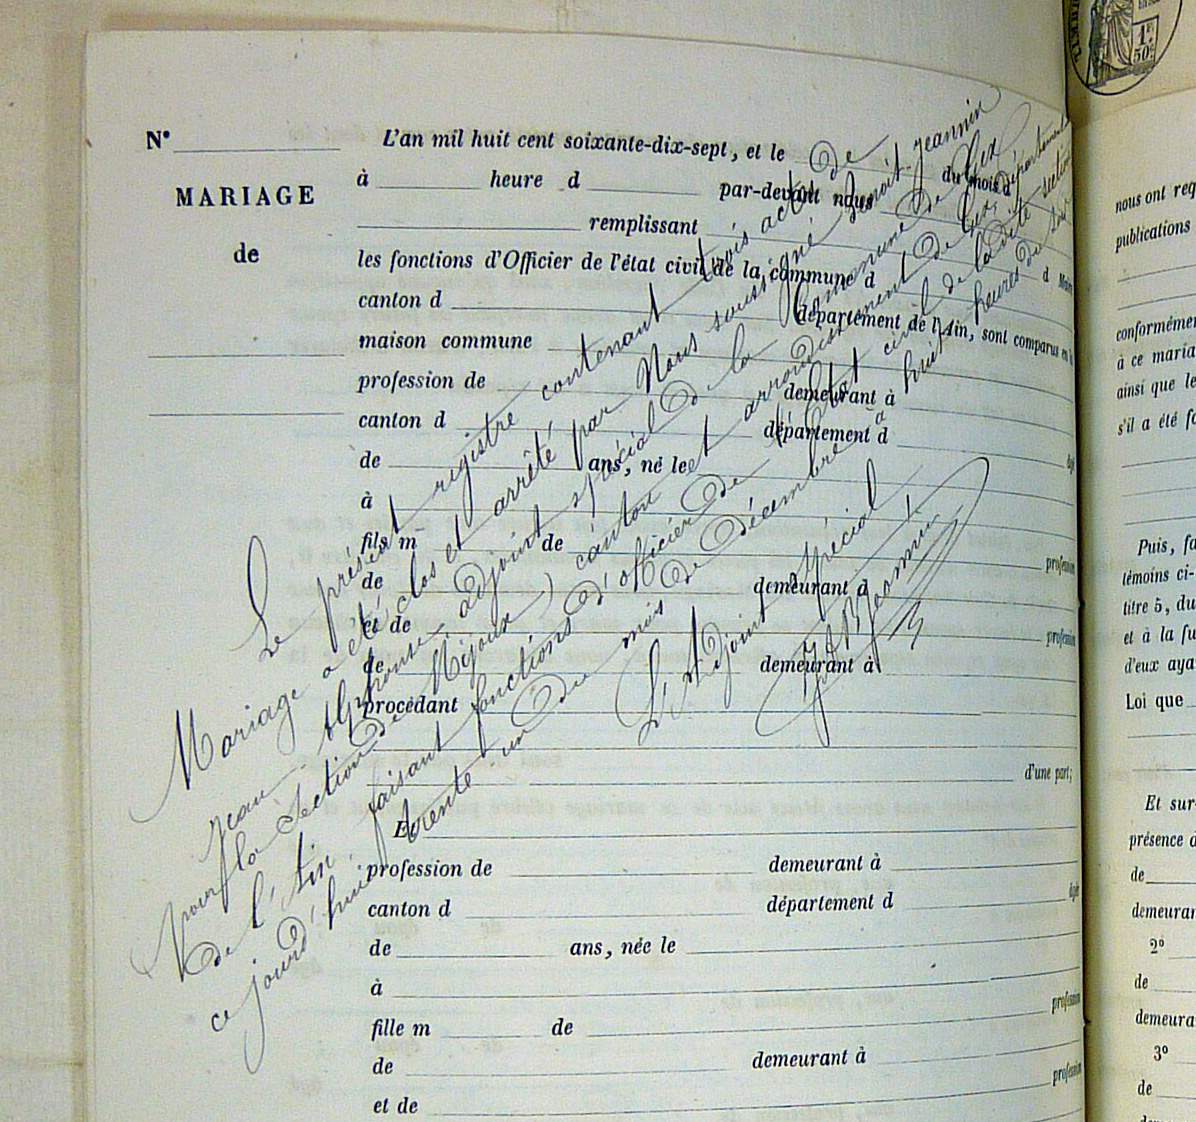 N°
MARIAGE
de
L'an mil huit cent soixante-dix-sept, et le
du mois d
à heure d par-devant nous
remplissant
les fonctions d'Officier de l'état civil de la commune d
canton d département de l'Ain, sont comparus en la
maison commune
profession de demeurant à
canton d département d
de ans, né le
à
fils m de
profession
de demeurant à
et de
profession
de demeurant à
procédant
d'une part;
Et
profession de demeurant à
canton d département d
de ans, née le
à
fille m de
profession
de demeurant à
et de
profession
Le présent registre contenant trois actes de
Mariage a été clos et arrêté par Nous soussigné Benoit-Jeannin
Jean Alphonse adjoint spécial de la Commune de Gex
pour la section de Mijoux) canton et arrondissement de Gex, département
de l'Ain, faisant fonctions d'officier de l'état civil de la dite section
ce jourd'hui trente un du mois de décembre à huit heures du soir
L'Adjoint Spécial
1F
50c
nous ont req
publications
conforméme
à ce maria
ainsi que le
s'il a été fa
Puis, fa
témoins ci-
titre 5, du
et à la fu
d'eux aya
Loi que
Et sur
présence d
de
demeurar
2°
de
demeura
3°
de